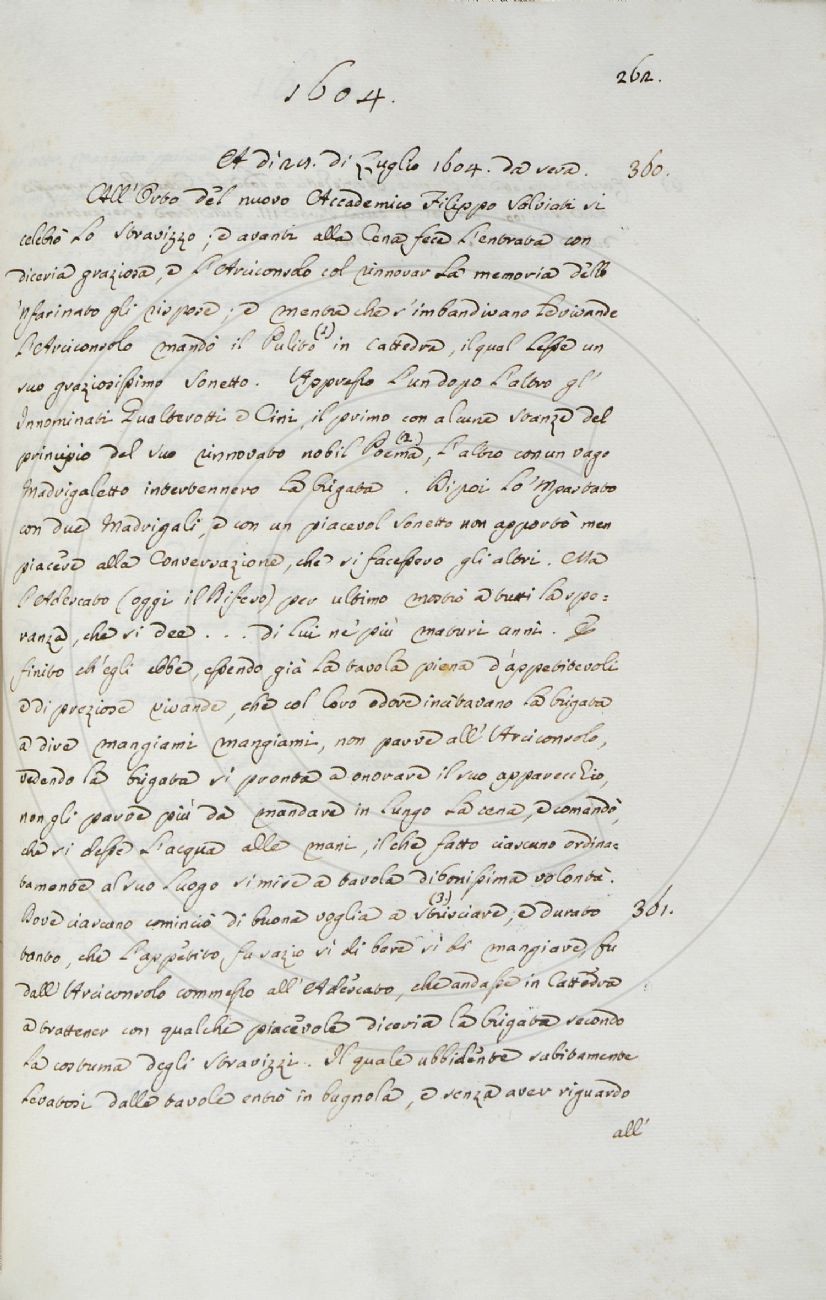 262.
1604.
A dì 25. di Luglio 1604. da sera. 360.
All'Orto del nuovo Accademico Filippo Salviati si
celebrò lo stravizzo; e avanti alla Cena fece l'entrata con
diceria graziosa, e l'Arciconsolo col rinnovar la memoria dello
'nfarinato gli rispose; e mentre che s'imbandivano le vivande
l'Arciconsolo mandò il Pulito (1) in Cattedra, il qual lesse un
suo graziosissimo sonetto. Appresso l'un dopo l'altro gl'
Innominati Gualterotti e Cini, il primo con alcune stanze del
principio del suo rinnovato nobil Poema (2), l'altro con un vago
Madrigaletto intertennero la brigata. Dipoi lo 'Mpastato
con due Madrigali, e con un piacevol sonetto non apportò men
piacere alla Conversazione, che si facessero gli altri. Ma
l'Adescato (oggi il Bifero) per ultimo mostrò a tutti la spe=
ranza, che si dee . . . di lui ne' più maturi anni. E
finito ch'egli ebbe, essendo già la tavola piena d'appetitevoli
e di preziose vivande, che col loro odore incitavano la brigata
a dire mangiami mangiami, non parve all'Arciconsolo,
vedendo la brigata sì pronta a onorare il suo apparecchio,
non gli parve più da mandare in lungo la cena, e comandò,
che si desse l'acqua alle mani, il che fatto ciascuno ordina=
tamente al suo luogo si mise a tavola di bonissima volontà.
Dove ciascuno cominciò di buona voglia a strisciare (3.); e durato 361.
tanto, che l'appetito fu sazio sì di bere sì di mangiare, fu
dall'Arciconsolo commesso all'Adescato, che andasse in Cattedra
a trattener con qualche piacevole diceria la brigata secondo
la costuma degli stravizzi. Il quale ubbidente subitamente
levatosi dalle tavole entrò in bugnola, e senza aver riguardo
all'